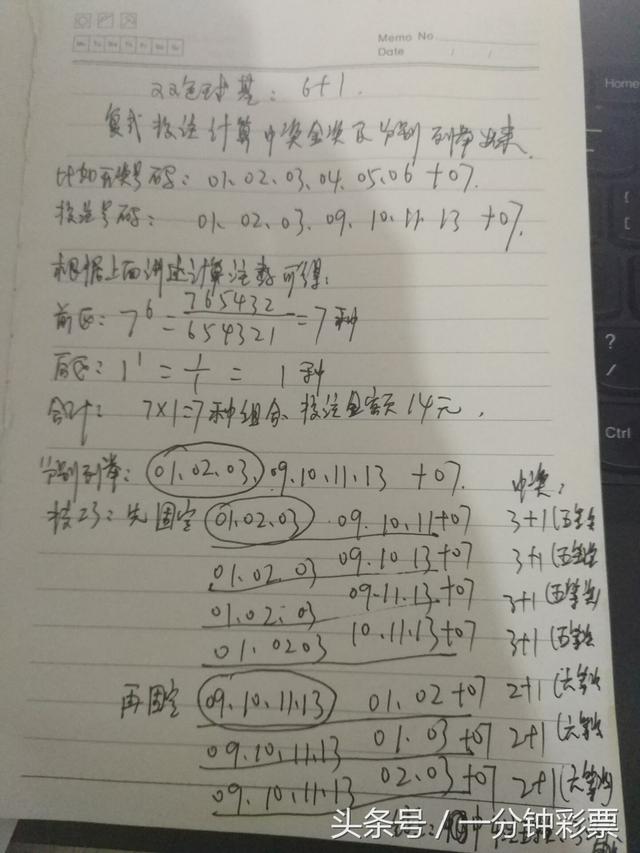 Memo No.
Mo Tu We Th Fr Sa Su
Date / /
双色球基: 6+1.
复式投注计算中奖金奖及分别列举出来.
比如开奖号码: 01.02.03.04.05.06+07.
投注号码: 01.02.03.09.10.11.13+07.
根据上面讲述计算注数可得:
前区: 7⁶=765432/654321=7种
后区: 1¹=1/1=1种
合计: 7×1=7种组合、投注金额14元.
分别列举: 01.02.03.09.10.11.13+07. 中奖:
技巧: 先固定 01.02.03 09.10.11+07 3+1(五等
01.02.03 09.10.13+07 3+1(五等
01.02.03 09.11.13+07 3+1(五等奖
01.0203 10.11.13+07 3+1(五等
再固定 09.10.11.13 01.02+07 2+1(六等
09.10.11.13 01.03+07 2+1(六等
09.10.11.13 02.03+07 2+1(六等
头条号/一分钟彩票
Home
?
/
Ctrl